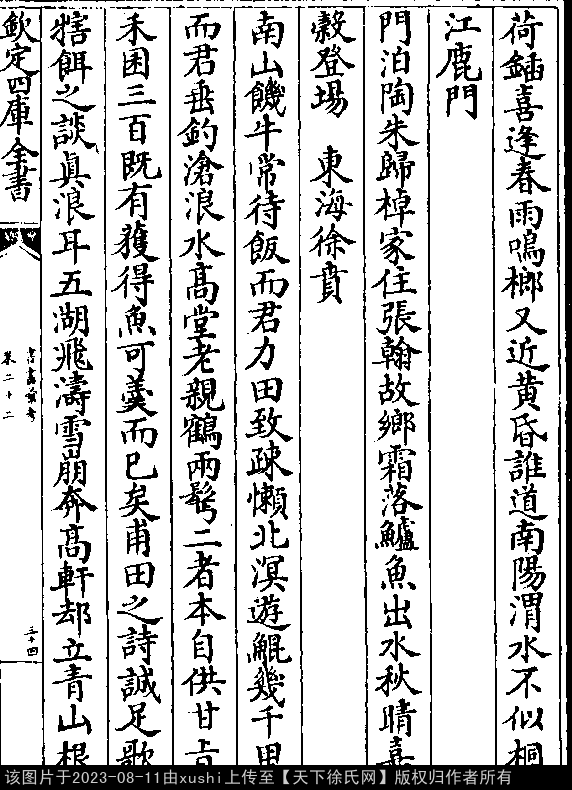 荷鍤喜逢春雨鳴榔又近黄昏誰道南陽渭水不似桐
江鹿門
門泊陶朱歸棹家住張翰故鄉霜落鱸魚出水秋晴嘉
穀登場　東海徐賁
南山饑牛常待飯而君力田致疎懶北溟遊鯤幾千里
而君垂釣滄浪水高堂老親鶴兩髩二者本自供甘旨
禾囷三百既有獲得魚可羮而已矣甫田之詩誠足歌
犗餌之談眞浪耳五湖飛濤雪崩奔高軒却立青山根
欽定四庫全書
書畫彚考
卷二十二
三十四
该图片于2023-08-11由xushi上传至【天下徐氏网】版权归作者所有